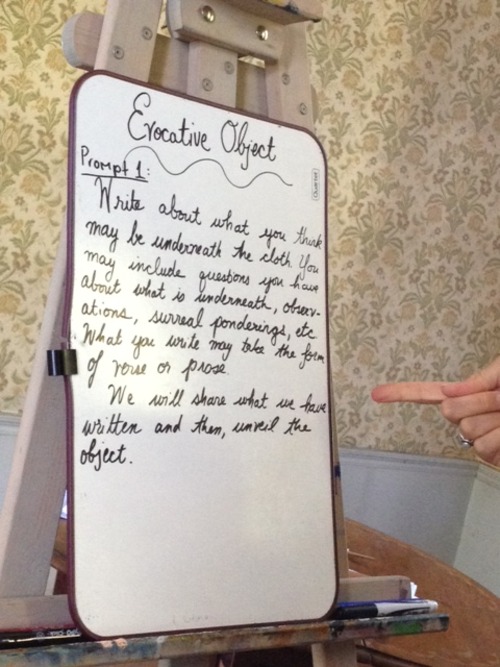 Evocative Object
Prompt 1:
Quartet
Write about what you think
may be underneath the cloth. You
may include questions you have
about what is underneath, observ-
ations, surreal ponderings, etc
What you write may take the form
of verse or prose.
We will share what we have
written and then, unveil the
object.